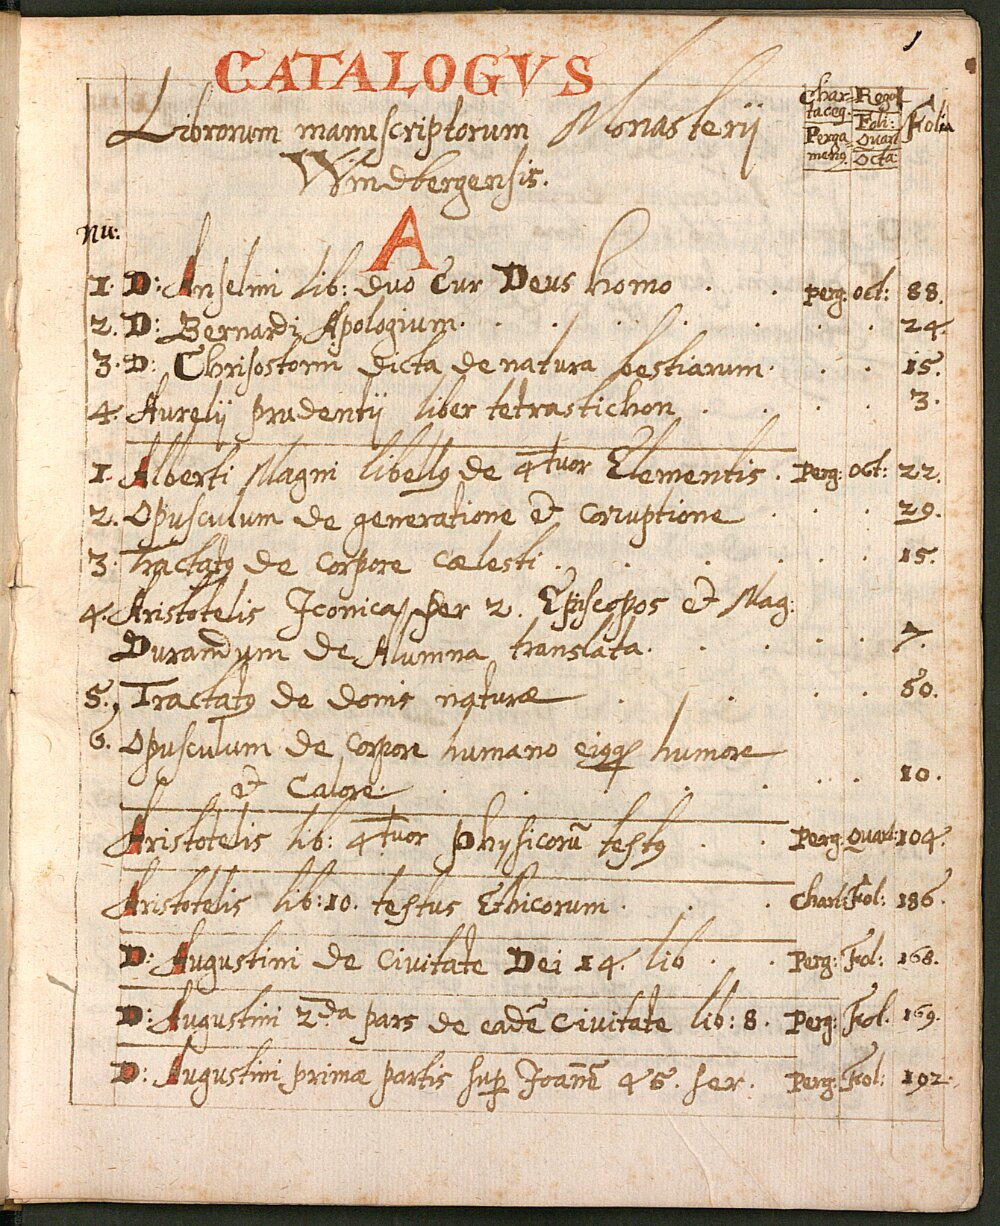 1
CATALOGVS
Librorum manuscriptorum Monasterij
Windbergensis.
Char= Regal
taceg. Foli:
Perga= Quart
meng. Octa:
Folia
nu:
A
1. D: Anselmi lib: duo Cur Deus homo . . perg: oct: 88.
2. D: Bernardi Apologium. . . . . . . 24.
3. D: Chrisostomi dicta de natura bestiarum. . . 15.
4. Aurelij prudentij liber tetrastichon . . . . 3.
1. Alberti Magni libellꝰ de 4tuor Elementis . Perg: Oct: 22.
2. Opusculum de generatione & corruptione . . . 29.
3. Tractatꝰ de corpore cælesti . . . . . . 15.
4. Aristotelis Iconica per 2. Episcopos & Mag:
Durandum de Alumna translata. . . . . 7.
5. Tractatꝰ de donis naturæ . . . . 50.
6. Opusculum de corpore humano eiꝰqꝫ humore
& Calore. . . . . . . 10.
Aristotelis lib: 4tuor physicorū textꝰ . . Perg: Quart: 104.
Aristotelis lib: 10. textus Ethicorum . . . Chart: Fol: 186.
D: Augustini de Ciuitate Dei 14. lib . . Perg: Fol: 168.
D: Augustini 2da pars de eadē Ciuitate lib: 8. Perg: Fol. 169.
D: Augustini primæ partis sup Joānē 46. ser. Perg: Fol: 192.